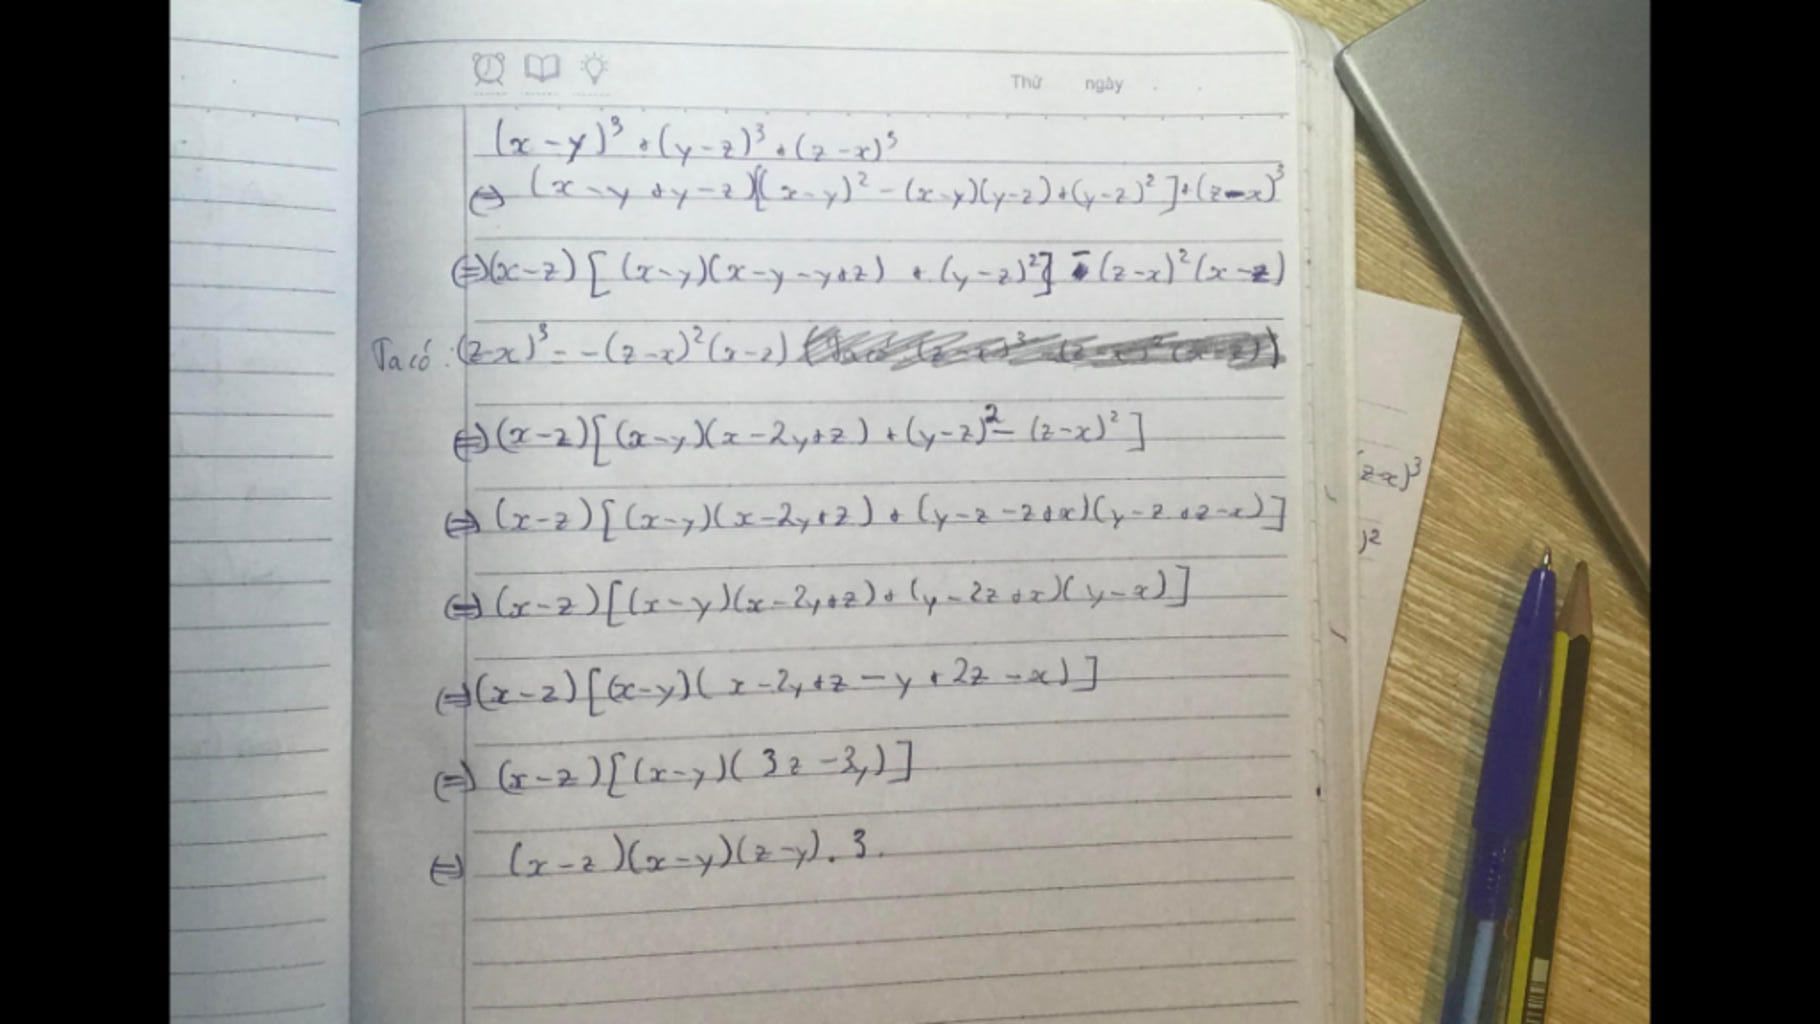 Thứ ngày
(x-y)³ + (y-z)³ + (z-x)³
⇔ (x-y+y-z)[(x-y)² - (x-y)(y-z) + (y-z)²] + (z-x)³
⇔ (x-z)[(x-y)(x-y-y+z) + (y-z)²] - (z-x)²(x-z)
Ta có : (z-x)³ = -(z-x)²(x-z)
⇔ (x-z)[(x-y)(x-2y+z) + (y-z)² - (z-x)²]
⇔ (x-z)[(x-y)(x-2y+z) + (y-z-z+x)(y-z+z-x)]
⇔ (x-z)[(x-y)(x-2y+z) + (y-2z+x)(y-x)]
⇔ (x-z)[(x-y)(x-2y+z-y+2z-x)]
⇔ (x-z)[(x-y)(3z-3y)]
⇔ (x-z)(x-y)(z-y).3.
(z-x)³
)²